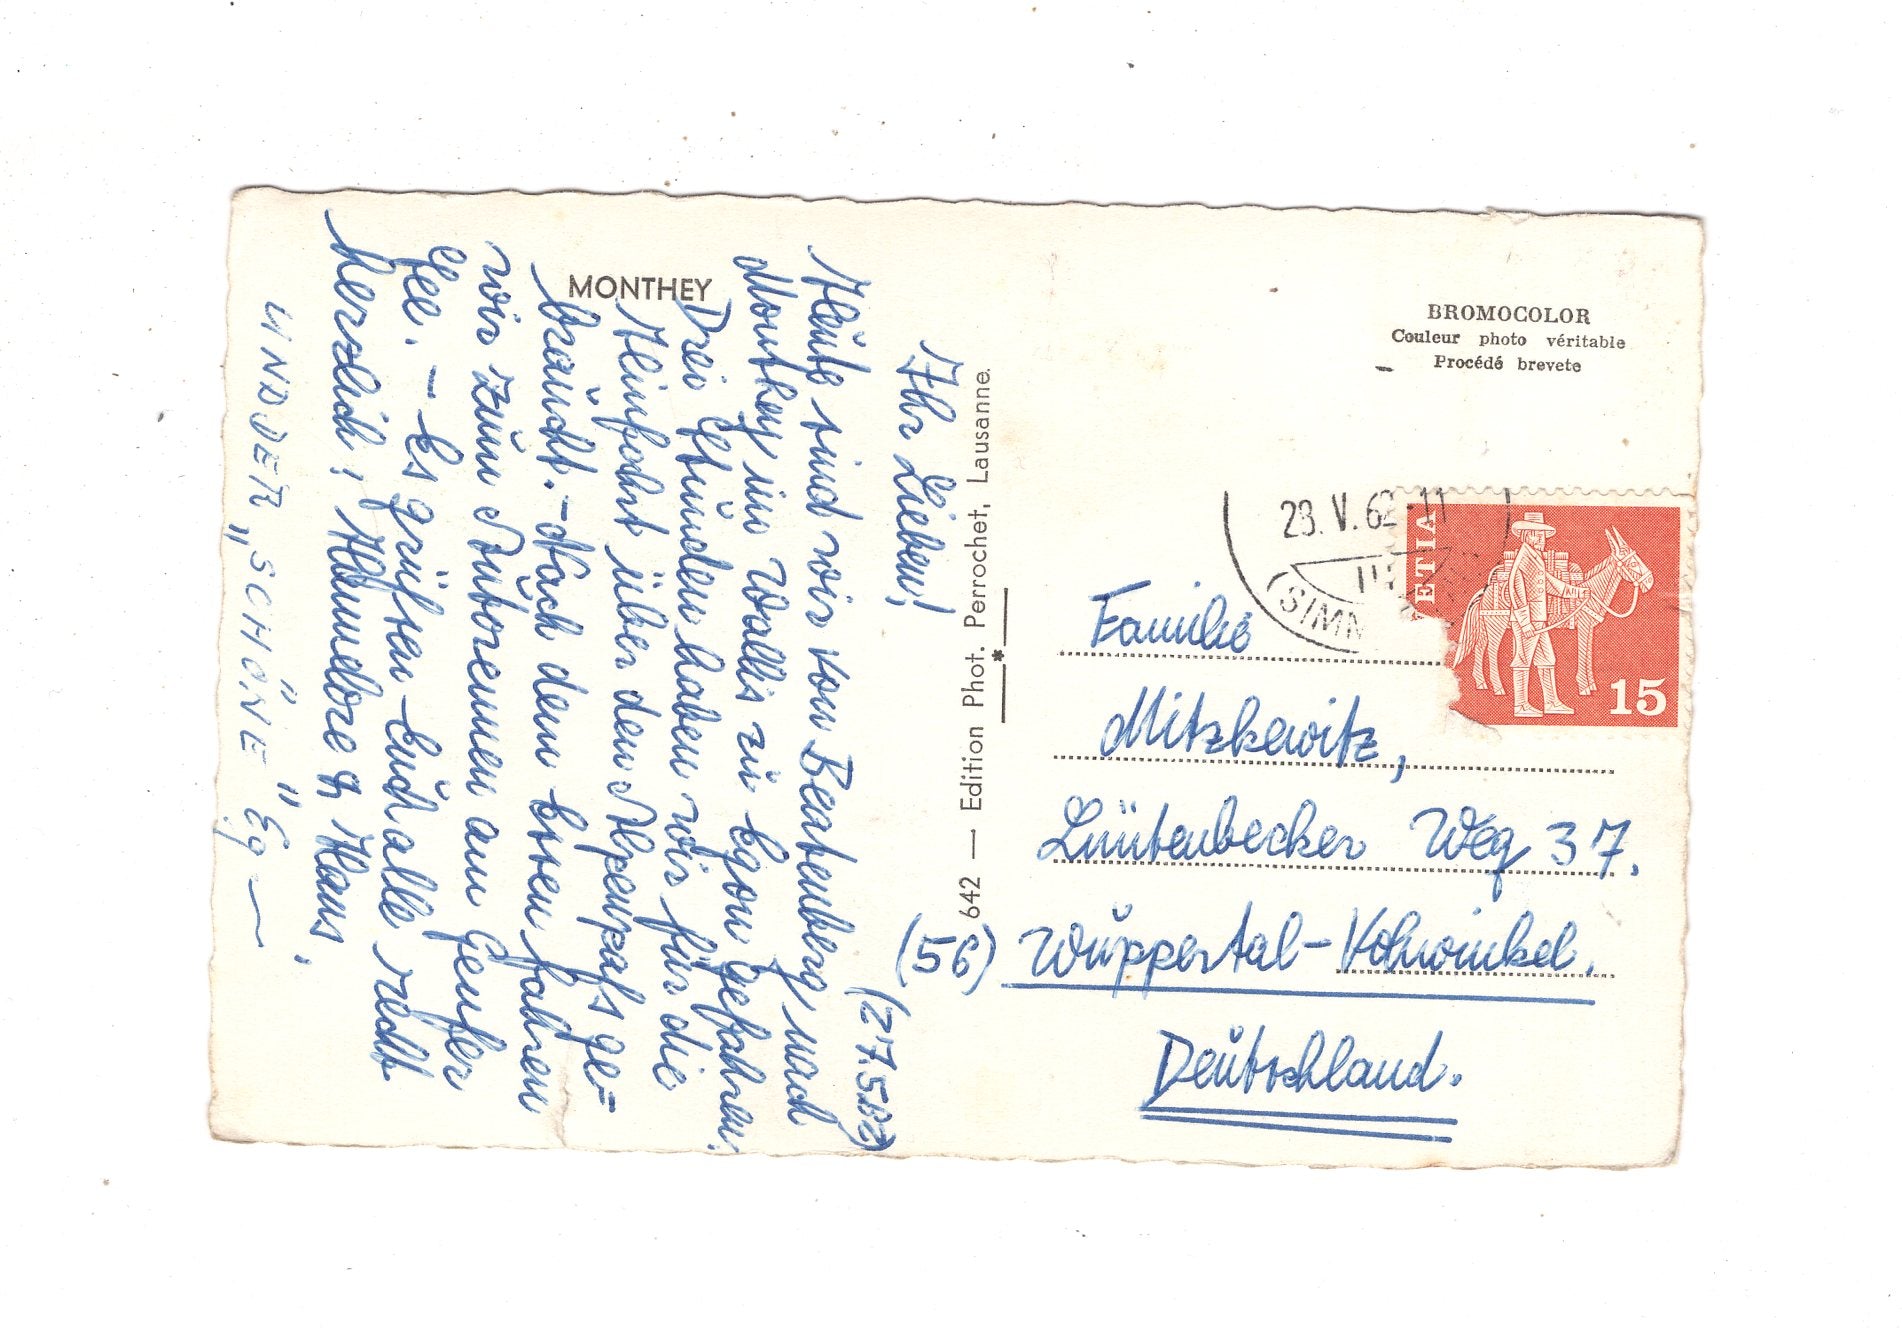 MONTHEY
(27.5.62)
Ihr Lieben!
Heute sind wir von Beatenberg nach
Monthey im Wallis zu Egon gefahren.
Drei Stunden haben wir für die
Hinfahrt über den Alpenpaß ge=
braucht. - Nach dem Essen fahren
wir zum Autorennen am Genfer
See. - Es grüßen Euch alle recht
herzlich: Hannelore & Hans,
UND DER „SCHÖNE" Eg
642 — Edition Phot. Perrochet, Lausanne.
BROMOCOLOR
Couleur photo véritable
Procédé brevete
28.V.62-11
(SIMM
ETIA
15
Familie
Mitzkewitz,
Lüntenbecker Weg 37.
(56) Wuppertal-Vohwinkel.
Deutschland.